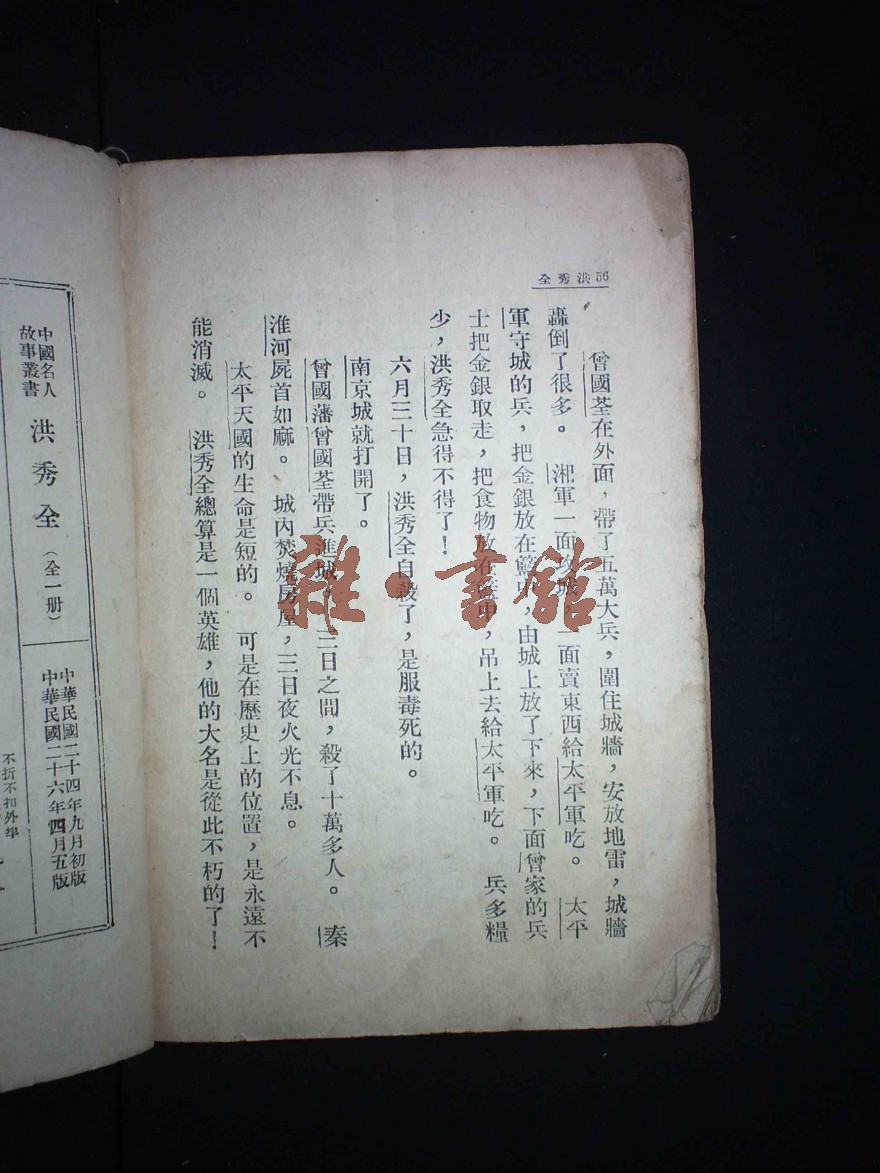 洪秀全 56
曾國荃在外面，帶了五萬大兵，圍住城牆，安放地雷，城牆
轟倒了很多。湘軍一面攻城，一面賣東西給太平軍吃。太平
軍守城的兵，把金銀放在籃中，由城上放了下來，下面曾家的兵
士把金銀取走，把食物放在籃中，吊上去給太平軍吃。兵多糧
少，洪秀全急得不得了！
六月三十日，洪秀全自殺了，是服毒死的。
南京城就打開了。
曾國藩曾國荃帶兵進城。三日之間，殺了十萬多人。秦
淮河屍首如麻。城內焚燒房屋，三日夜火光不息。
太平天國的生命是短的。可是在歷史上的位置，是永遠不
能消滅。洪秀全總算是一個英雄，他的大名是從此不朽的了！
雜·書館
中國名人
故事叢書
洪秀全（全一册）
中華民國二十四年九月初版
中華民國二十六年四月五版
不折不扣外埠